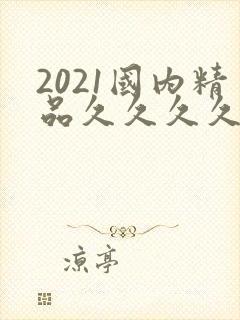 2021國内精
品久久久久
凉亭